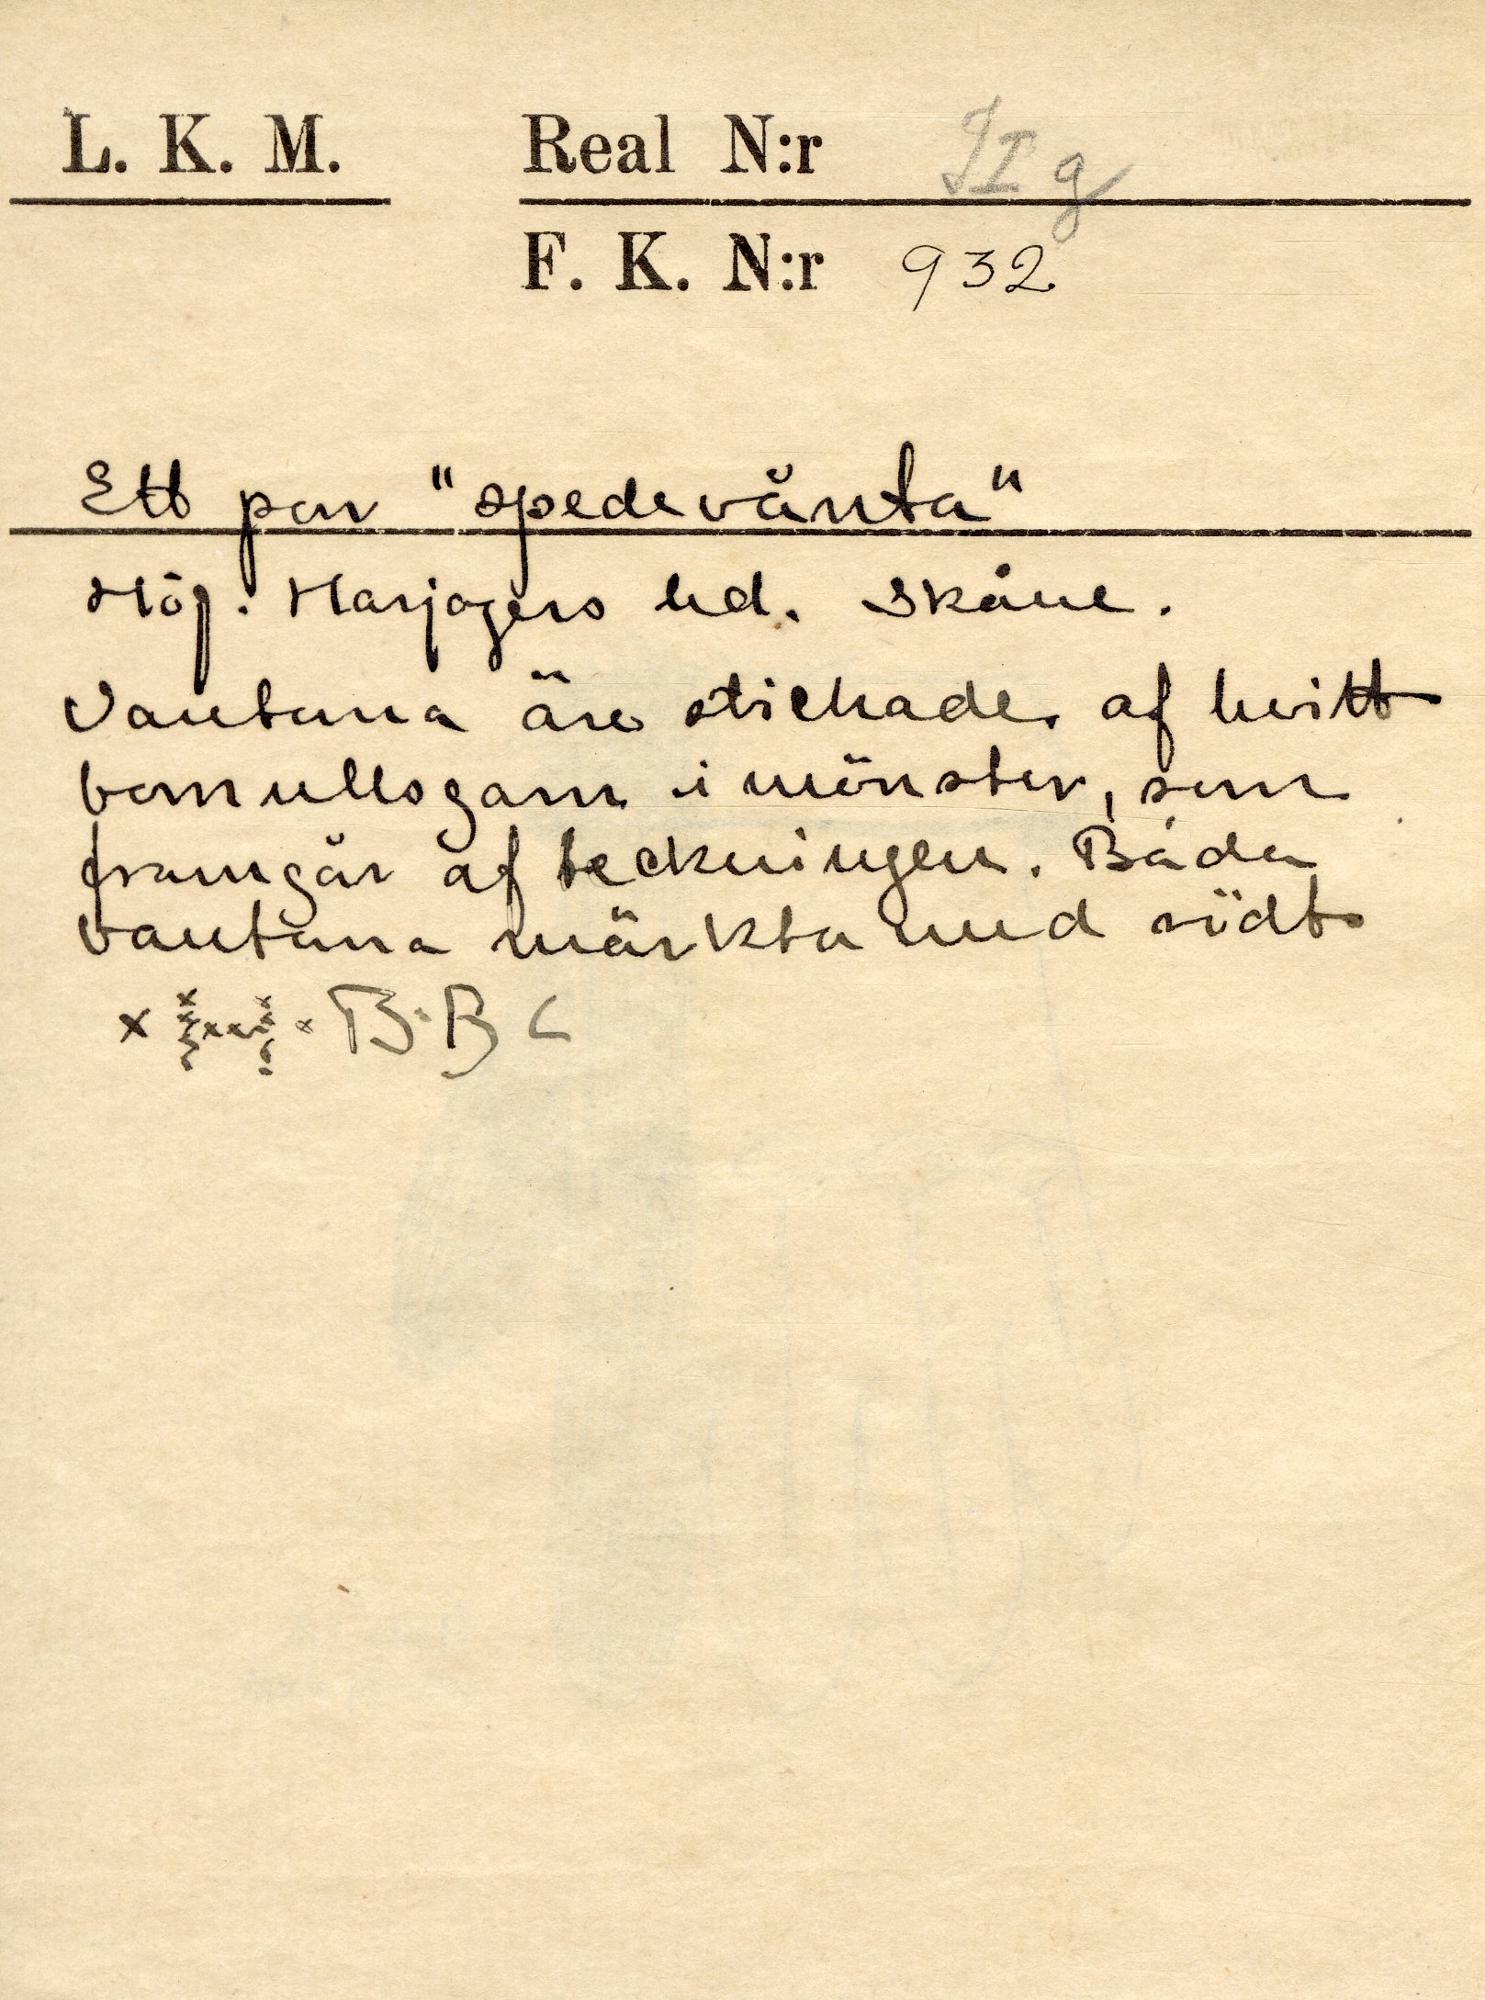 L. K. M. Real N:r II g
F. K. N:r 932
Ett par "spedevänta"
Höj. Harjagers hd. Skåne.
Vantarna äro stickade af hvitt
bomullsgarn i mönster, som
framgår af teckningen. Båda
vantarna märkta med rödt
x H x B·B